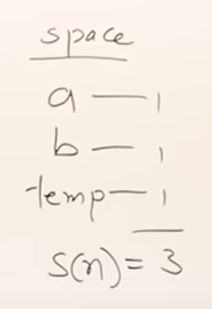 space
a — 1
b — 1
temp — 1
S(n) = 3